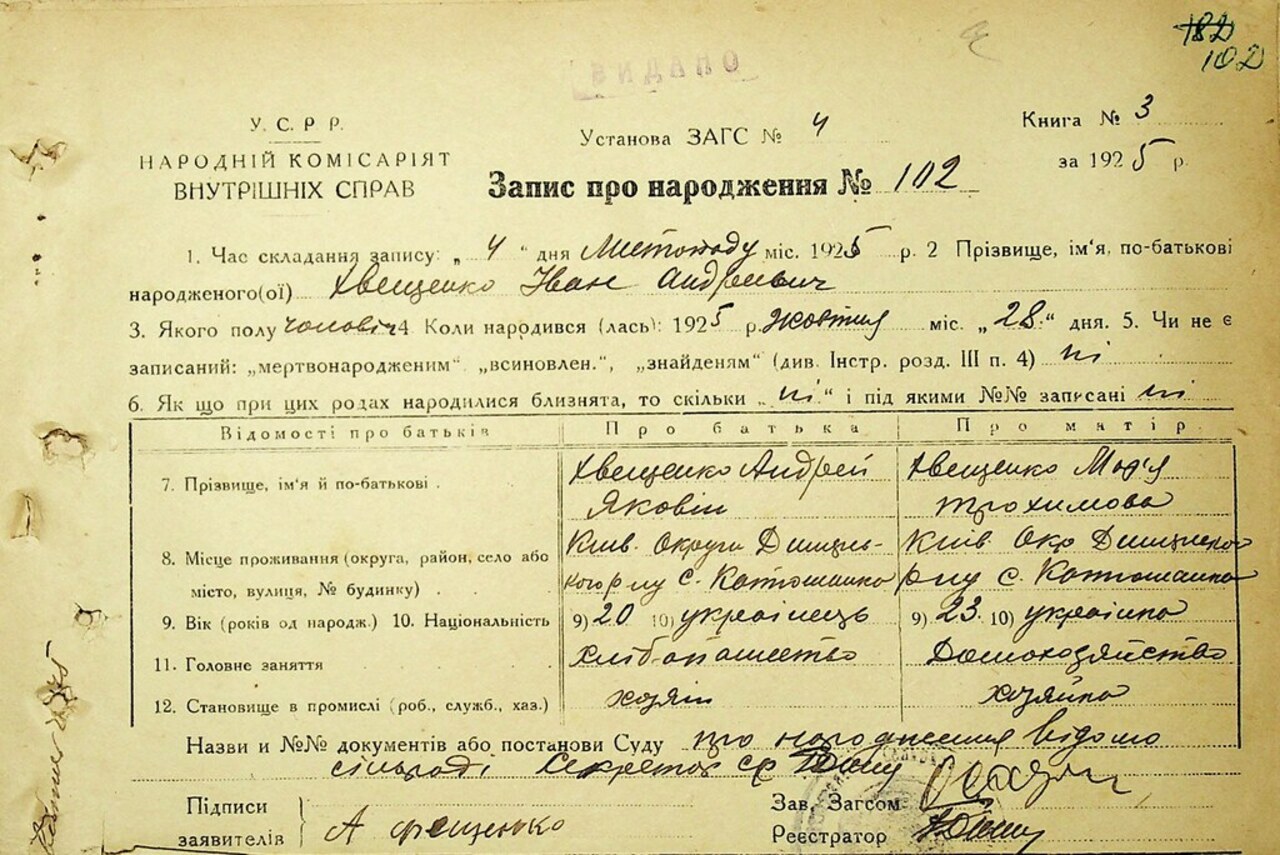 182
102
ВИДАНО
У. С. Р. Р.
НАРОДНІЙ КОМІСАРІЯТ
ВНУТРІШНІХ СПРАВ
Установа ЗАГС № 4
Книга № 3
за 1925 р.
Запис про народження № 102
1. Час складання запису: „ 4 “ дня Листопаду міс. 1925 р. 2 Прізвище, ім'я, по-батькові
народженого(ої) Хвещенко Іван Андреевич
3. Якого полу чоловіч 4 Коли народився (лась): 1925 р. жовтня міс. „ 28. “ дня. 5. Чи не є
записаний: „мертвонародженим“ „всиновлен.“, „знайденям“ (див. Інстр. розд. III п. 4) ні
6. Як що при цих родах народилися близнята, то скільки „ ні “ і під якими №№ записані ні
Відомості про батьків Про батька Про матір
7. Прізвище, ім'я й по-батькові . Хвещенко Андрей Яковін Хвещенко Мар'я Трохимова
8. Місце проживання (округа, район, село або місто, вулиця, № будинку) . Київ. Округи с. Київ Окр с.
9. Вік (років од народж.) 10. Національність 9) 20 10) українець 9) 23. 10) українка
11. Головне заняття Хлібопашество Домохозяйство
12. Становище в промислі (роб., служб., хаз.) хозяін хозяйка
Назви и №№ документів або постанови Суду про народження відомо
сільраді Секретар
Підписи
заявителів А Фещенко
Зав. Загсом
Реєстратор